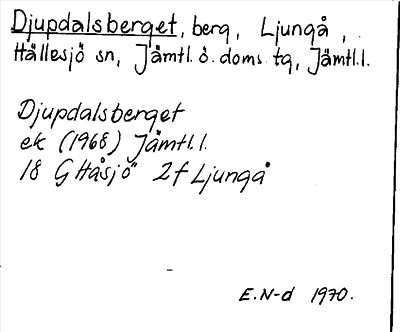 Djupdalsberget, berg, Ljungå,
Hällesjö sn, Jämtl. ö. doms. tg, Jämtl.l.
Djupdalsberget
ek (1968) Jämtl.l.
18 G Håsjö 2f Ljungå
E.N-d 1970.